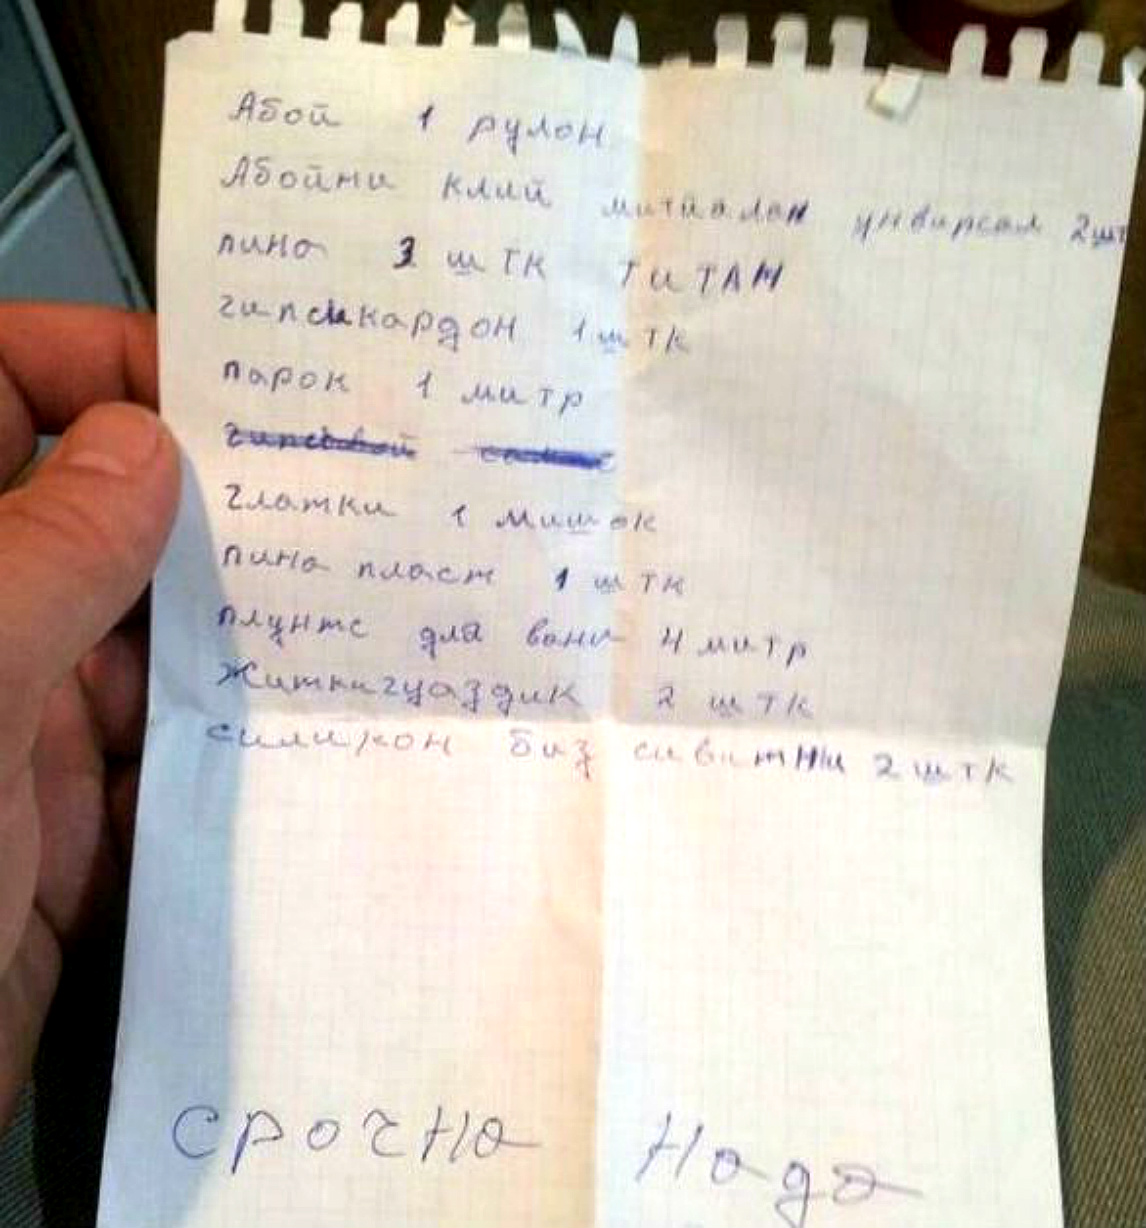 Абой 1 рулон
Абойни клий митйалан унвирсал 2шт
пина 3 штк титан
гипсикардон 1 штк
парок 1 митр
глатки 1 мишок
пина пласт 1 штк
плунтс для вани 4 митр
Житкигуаздик 2 штк
силикон биз сивитни 2 штк
срочна надо